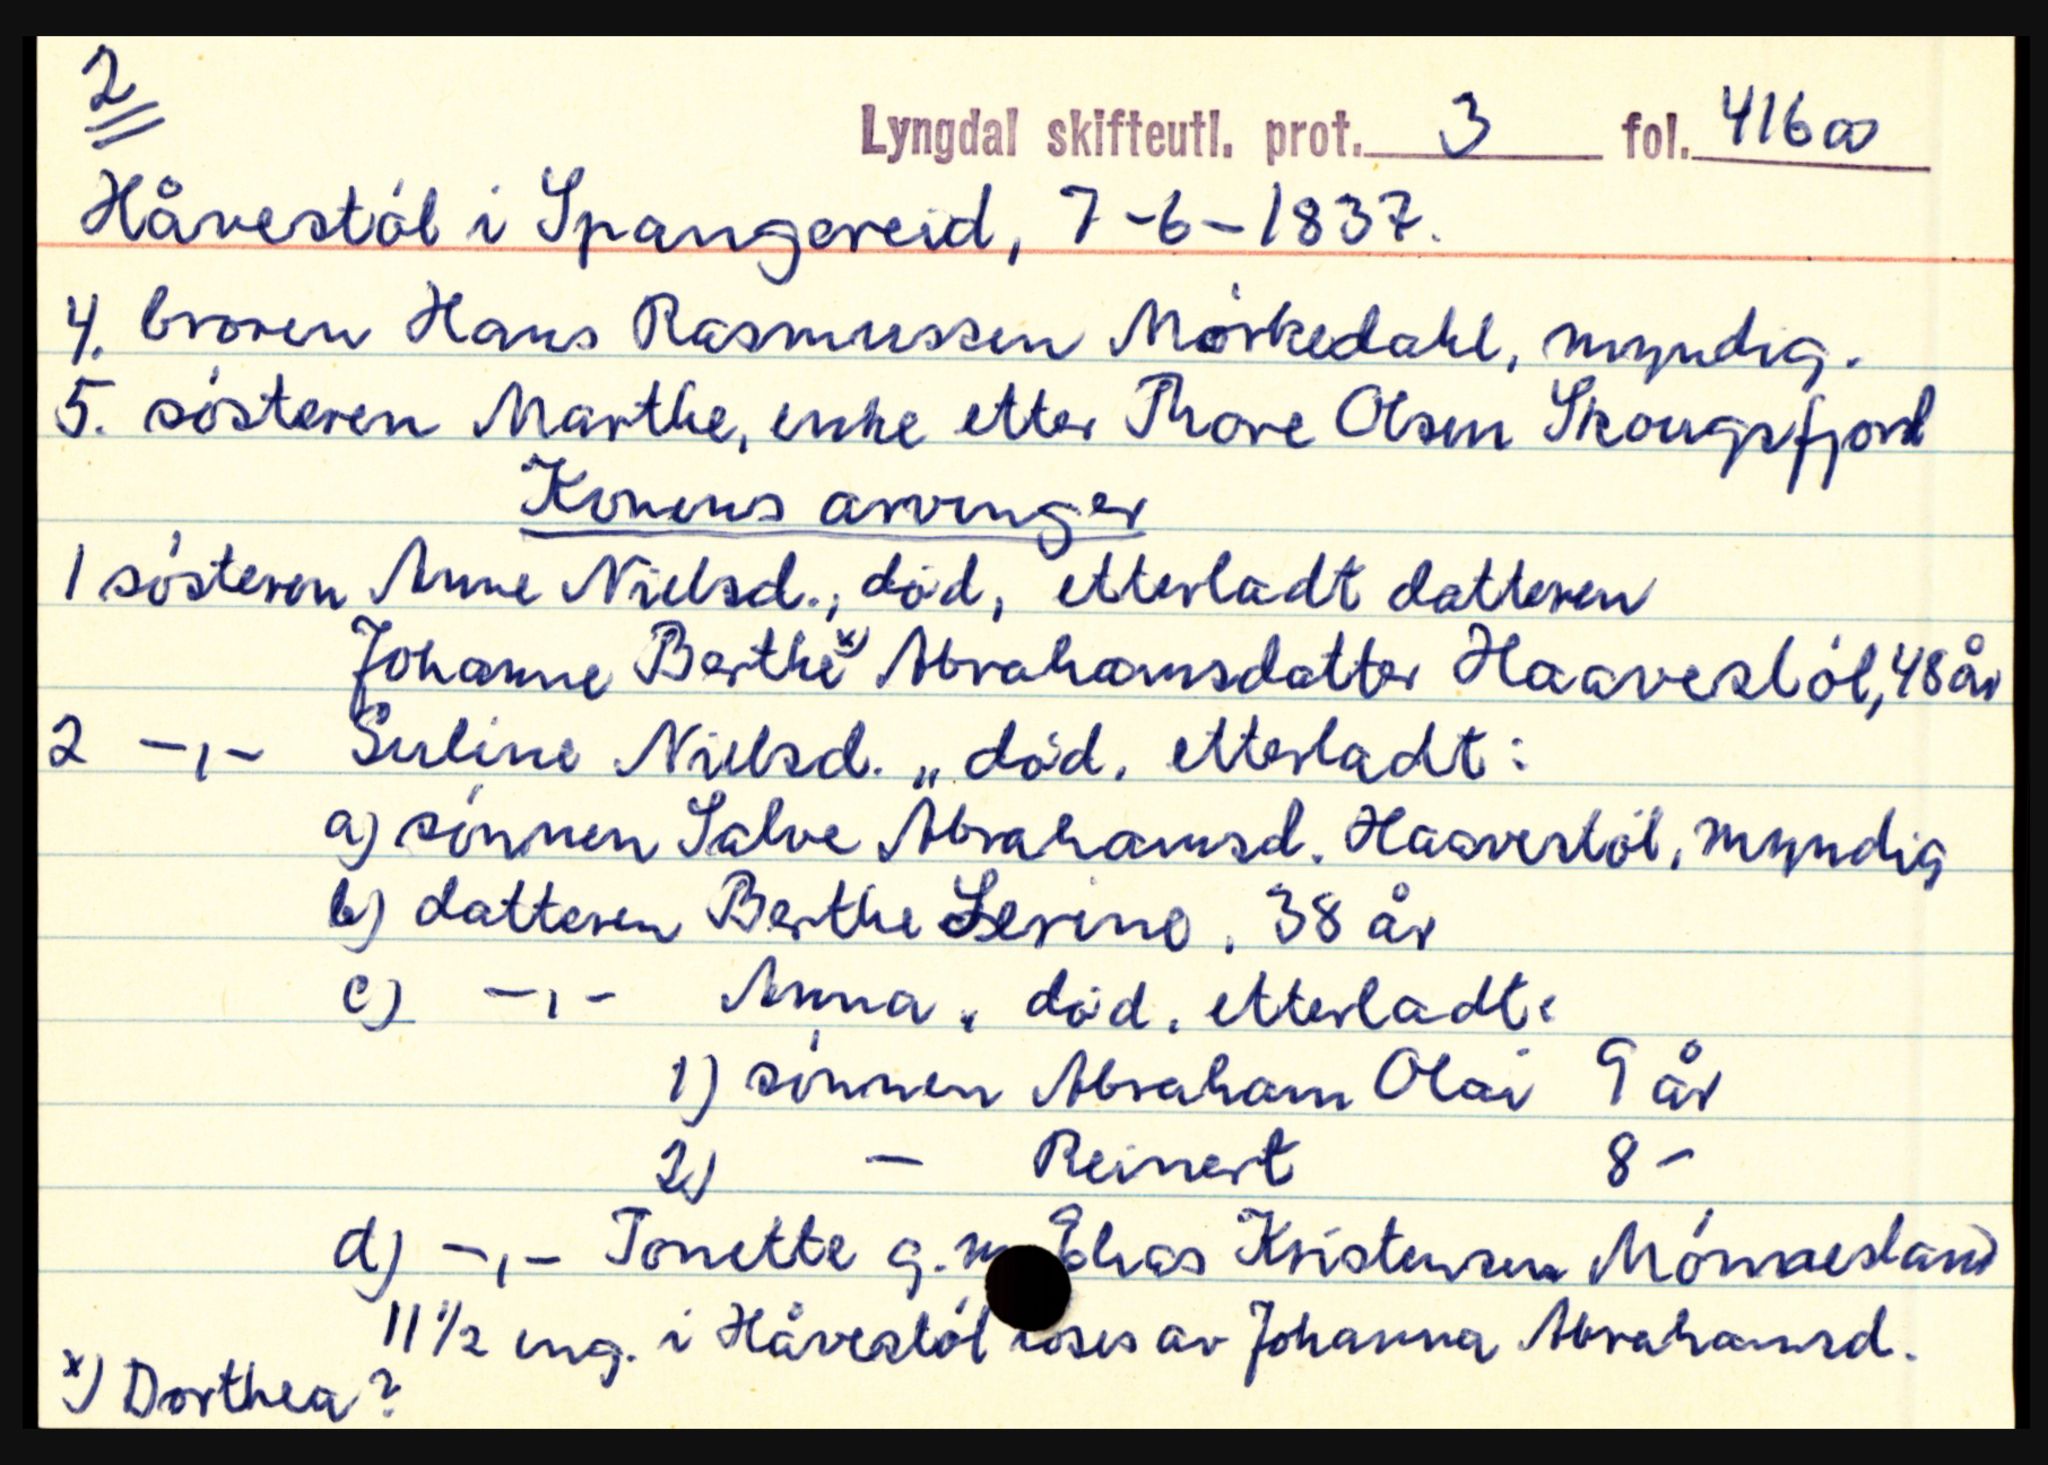 2
Lyngdal skifteutl. prot. 3 fol. 416a
Håvestöl i Spangereid, 7-6-1837.
4. broren Hans Rasmussen Mörkedahl, myndig.
5. sösteren Marthe, enke etter Thore Olsen Skougsfjord
Konens arvinger
1 sösteren Anne Nielsd., död, etterladt datteren
Johanne Berthe x) Abrahamsdatter Haavestöl, 48 år
2 -,- Seline Nielsd. „ död, etterladt:
a) sönnen Salve Abrahamsd. Haavestöl, myndig
b) datteren Berthe Serine, 38 år
c) -,- Anna, död, etterladt:
1) sönnen Abraham Olai 9 år
2) - Reinert 8 -
d) -,- Tonette g.m. Elias Kristensen Mönnesland
11 1/2 eng. i Håvestöl löses av Johanna Abrahamsd.
x) Dorthea?